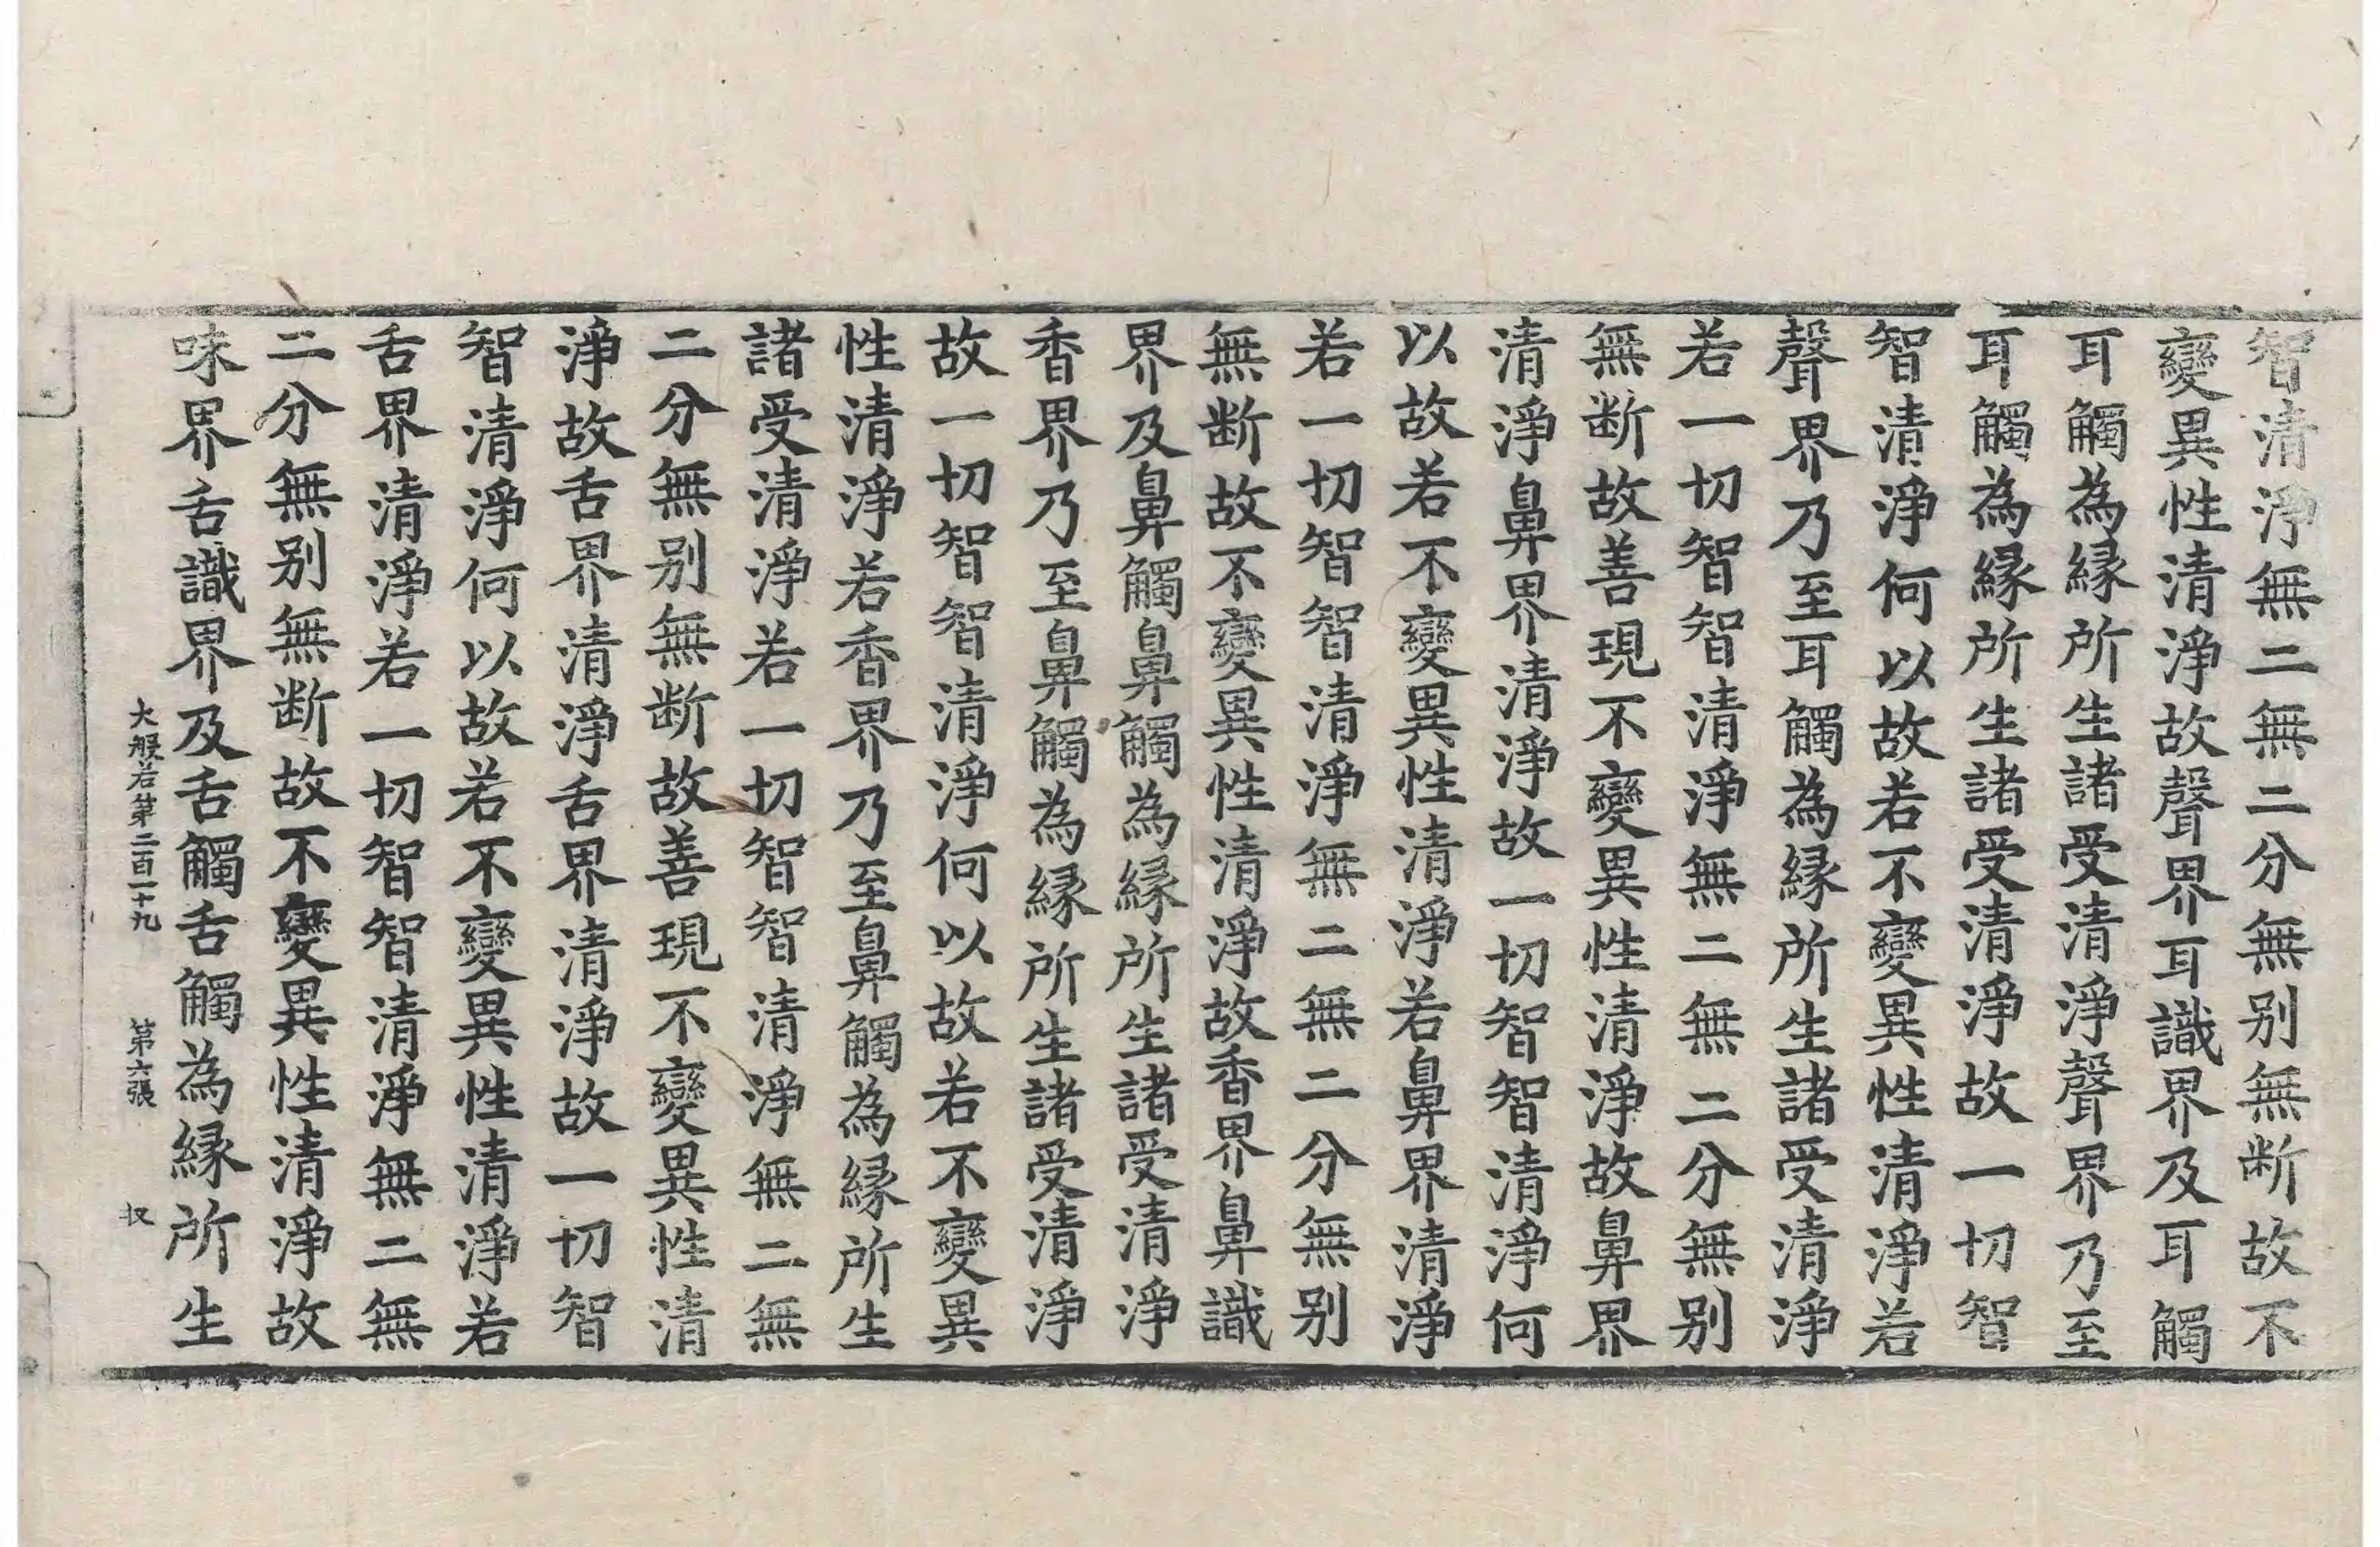 智清淨無二無二分無别無断故不
變異性清淨故聲界耳識界及耳觸
耳觸為縁所生諸受清淨聲界乃至
耳觸為縁所生諸受清淨故一切智
智清淨何以故若不變異性清淨若
聲界乃至耳觸為縁所生諸受清淨
若一切智智清淨無二無二分無别
無断故善現不變異性清淨故鼻界
清淨鼻界清淨故一切智智清淨何
以故若不變異性清淨若鼻界清淨
若一切智智清淨無二無二分無别
無断故不變異性清淨故香界鼻識
界及鼻觸鼻觸為縁所生諸受清淨
香界乃至鼻觸為縁所生諸受清淨
故一切智智清淨何以故若不變異
性清淨若香界乃至鼻觸為縁所生
諸受清淨若一切智智清淨無二無
二分無别無断故善現不變異性清
淨故舌界清淨舌界清淨故一切智
智清淨何以故若不變異性清淨若
舌界清淨若一切智智清淨無二無
二分無别無断故不變異性清淨故
味界舌識界及舌觸舌觸為縁所生
大般若第二百一十九 第六張